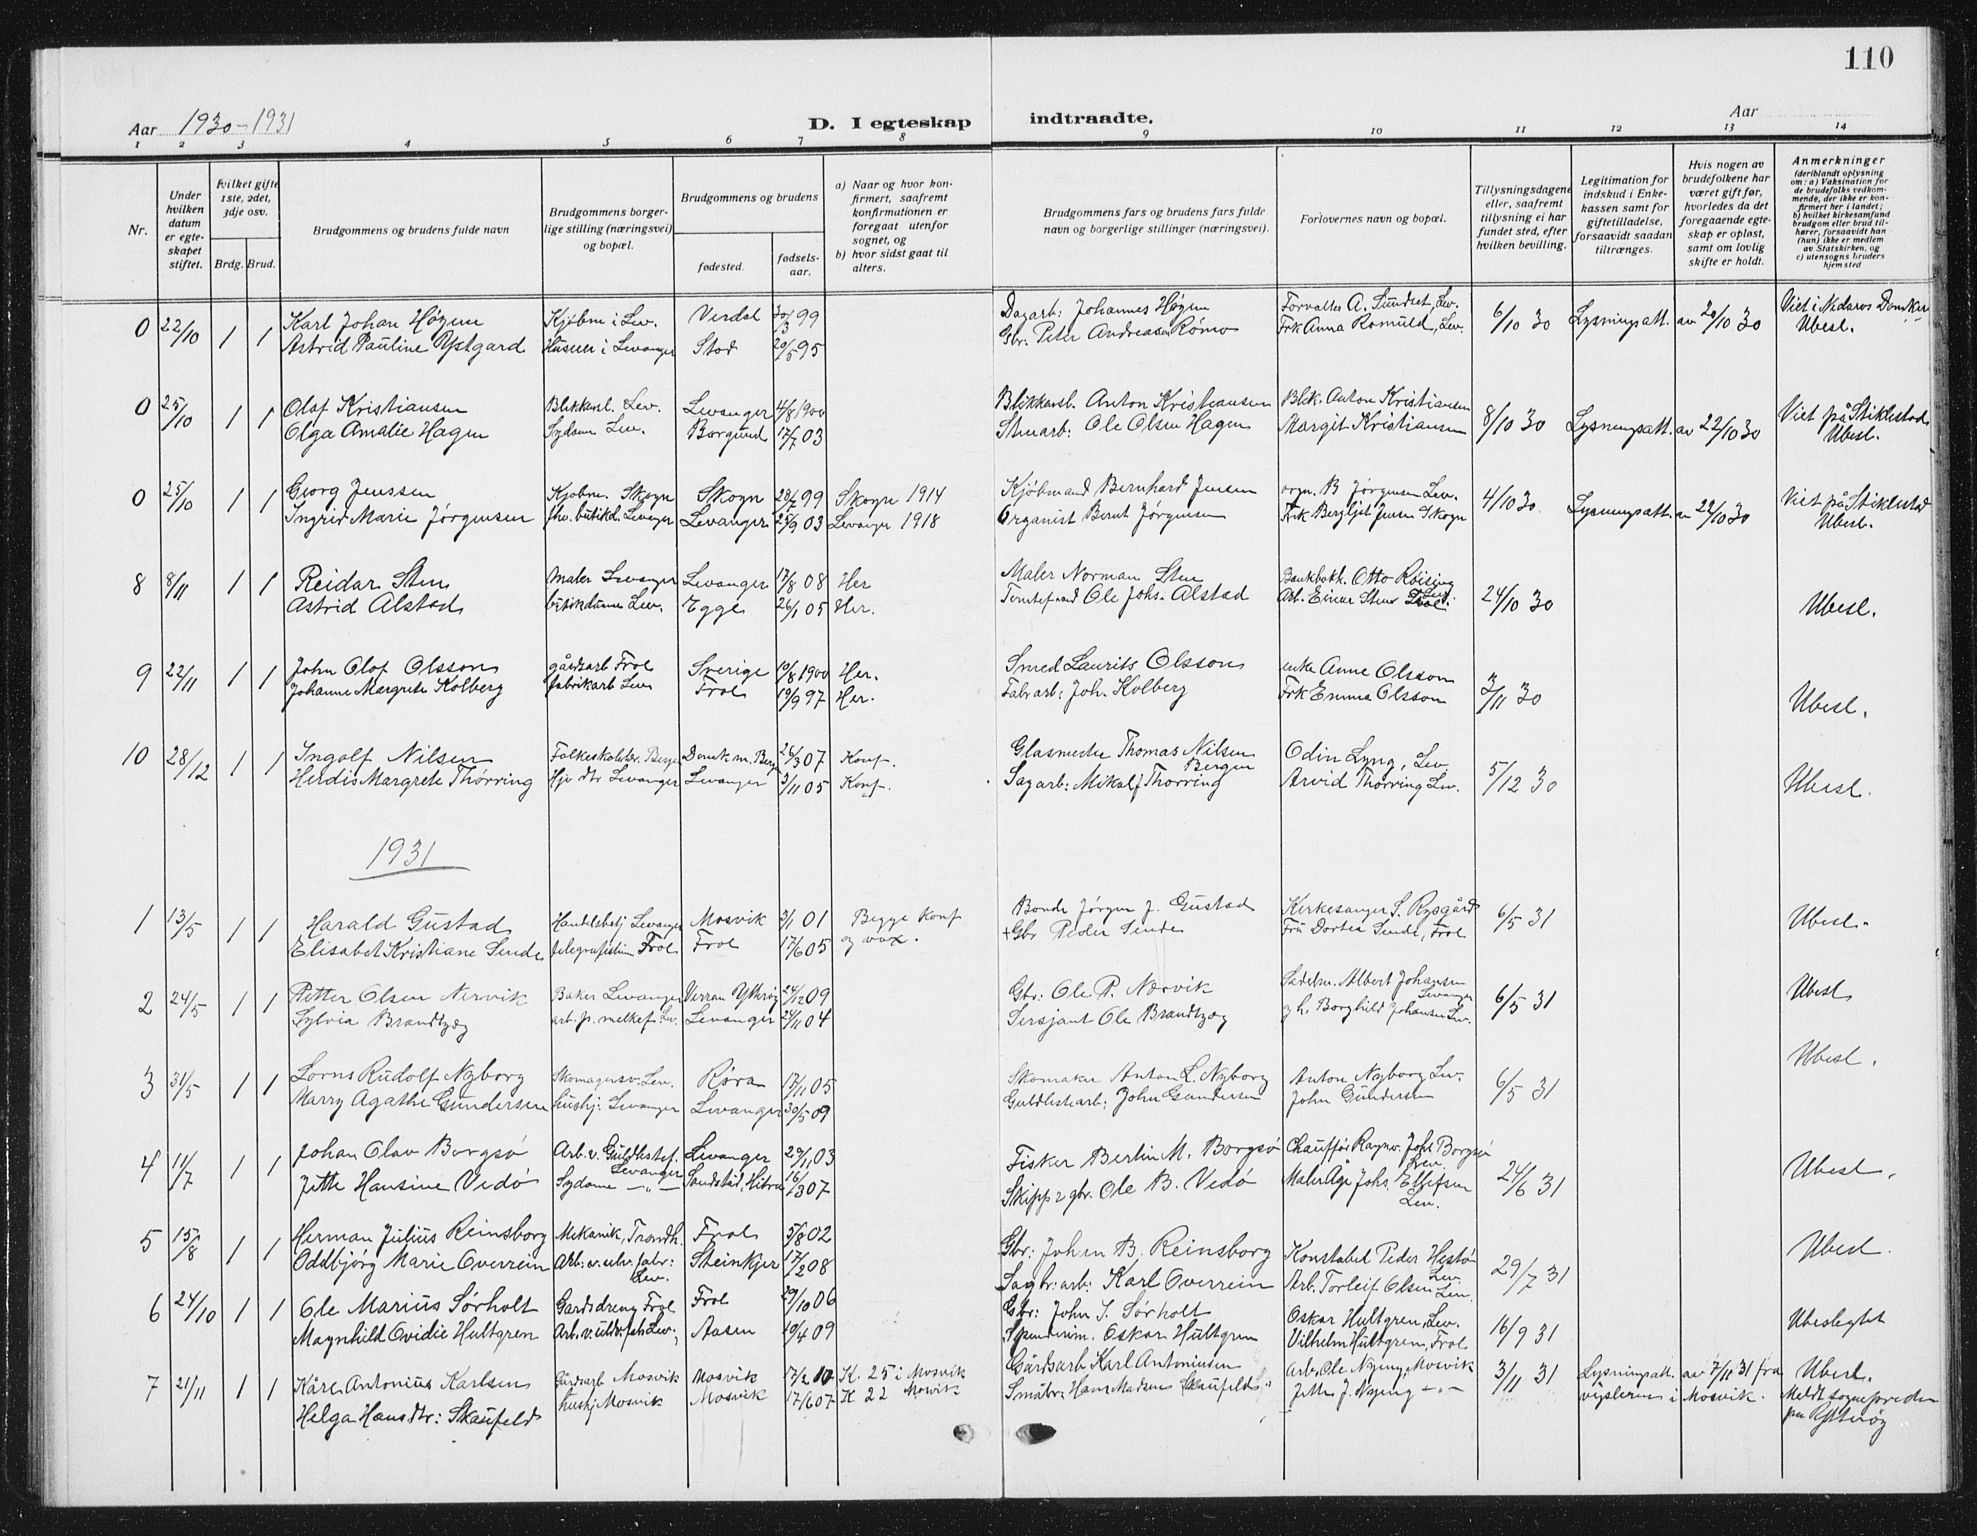 110
Aar 1930-1931 D. I egteskap indtraadte. Aar
1 2 3 4 5 6 7 8 9 10 11 12 13 14
Nr.
Under hvilken datum er egteskapet stiftet.
Hvilket gifte 1ste, 2det, 3dje osv.
Brdg. Brud.
Brudgommens og brudens fulde navn
Brudgommens borgerlige stilling (næringsvei) og bopæl.
Brudgommens og brudens
fødested. fødselsaar.
a) Naar og hvor konfirmert, saafremt konfirmationen er foregaat utenfor sognet, og
b) hvor sidst gaat til alters.
Brudgommens fars og brudens fars fulde navn og borgerlige stillinger (næringsvei).
Forlovernes navn og bopæl.
Tillysningsdagene eller, saafremt tillysning ei har fundet sted, efter hvilken bevilling.
Legitimation for indskud i Enkekassen samt for giftetilladelse, forsaavidt saadan tiltrænges.
Hvis nogen av brudefolkene har været gift før, hvorledes da det foregaaende egteskap er opløst, samt om lovlig skifte er holdt.
Anmerkninger (deriblandt oplysning om: a) Vaksination for de brudefolks vedkommende, der ikke er konfirmert her i landet; b) hvilket kirkesamfund brudgom eller brud tilhører, forsaavidt han (hun) ikke er medlem av Statskirken, og c) utensogns bruders hjemsted
0 22/10 1 1 Karl Johan Høgem Kjøbm i Lev. Verdal 30/3 99 Dagarb: Johannes Høgem Forvalter A. Sundset, Lev. 6/10 30 Lysningsatt. av 20/10 30 Viet i Nidaros Domkirke
Astrid Pauline Ystgard i Levanger Stod 20/5 95 Gbr. Peter Andreasen Rømo Frk Anna Romuld, Lev. Ubesl.
0 25/10 1 1 Olaf Kristiansen Blikkensl. Lev. Levanger 4/8 1900 Blikkensl. Anton Kristiansen Blik. Anton Kristiansen 8/10 30 Lysningsatt. av 22/10 30 Viet på Stiklestad
Olga Amalie Hagen Sydame Lev. Borgund 17/7 03 Stenarb: Ole Olsen Hagen Margit Kristiansen Ubesl.
0 25/10 1 1 Georg Jenssen Kjøbm. Skogn Skogn 28/7 99 Skogn 1914 Kjøbmand Bernhard Jensen orgn. B Jørgensen Lev. 4/10 30 Lysningsatt. av 22/10 30 Viet på Stiklestad
Ingrid Marie Jørgensen fhv. butikd. Levanger Levanger 25/9 03 Levanger 1918 Organist Bernt Jørgensen Frk Bergljot Jensen Skogn Ubesl.
8 8/11 1 1 Reidar Sten Maler Levanger Levanger 17/8 08 Her Maler Norman Sten Bankbokh. Otto Røising Lev. 24/10 30
Astrid Alstad butikdame Lev. Egge 26/1 05 Her. Tomtemand Ole Johs. Alstad Arb. Einar Sten Frol. Ubesl.
9 22/11 1 1 John Olof Olsson gårdsarb Frol Sverige 10/8 1900 Her. Smed Laurits Olsson enke Anne Olsson 3/11 30
Johanne Margrete Kolberg fabrikarb Lev Frol 19/9 97 Her. Fabrarb: Joh. Kolberg Frk Emma Olsson Ubesl.
10 28/12 1 1 Ingolf Nilsen Folkeskolelær. Bergen Domk. m. Berg. 26/3 07 Konf. Glasmester Thomas Nilsen Bergen Odin Lyng, Lev. 5/12 30
Herdis Margrete Thørring Hjv. dtr Levanger Levanger 3/11 05 Konf. Sagarb: Mikal J Thørring Arvid Thørring Lev. Ubesl.
1931
1 13/5 1 1 Harald Gustad Handelsbetj Levanger Mosvik 3/1 01 Begge konf Bonde Jørgen J. Gustad Kirkesanger S. Rygård 6/5 31 Ubesl.
Elisabet Kristiane Sende telegrafistinne Frol Frol 17/6 05 og vax. +Gbr Peder Sende Frü Dortea Sende, Frol
2 24/5 1 1 Petter Olsen Nervik Baker Levanger Verran Ytterøy 24/12 09 Gbr: Ole P. Nervik Sadelm. Albert Johansen Levanger 6/5 31 Ubesl
Sylvia Brandtzæg arb. p. melkef Lev. Levanger 24/11 04 Sersjant Ole Brandtzæg g h. Borghild Johansen Lev.
3 31/5 1 1 Lorns Rudolf Nyborg Skomagersv. Lev. Røra 17/11 05 Skomaker Anton L. Nyborg Anton Nyborg Lev. 6/5 31 Ubesl.
Marry Agathe Gundersen hushj: Levanger Levanger 30/5 09 Guldlistarb: John Gundersen John Gundersen
4 11/7 1 1 Johan Olav Borgsø Arb. v. Guldlistef. Levanger Levanger 29/11 03 Fisker Bertin M. Borgsø Chauffør Ragnv. Johs Borgsø Lev. 24/6 31 Ubesl.
Jette Hansine Vedø Sydame —„— Sandstad, Hitra 16/3 07 Skipp & gbr. Ole B. Vedø Maler Åge Johs. Ellefsen Lev.
5 15/8 1 1 Herman Julius Reinsborg Mekanik, Trondh. Frol 5/8 02 Gbr: Johan B. Reinsborg Konstabel Peder Hestø Lev. 29/7 31 Ubesl.
Oddbjørg Marie Overrein Arb: v. fabr: Lev. Steinkjer 17/2 08 Sagbr: arb: Karl Overrein Arb. Torleif Olsen Lev.
6 24/10 1 1 Ole Marius Sørholt Gardsdreng Frol Frol 29/10 06 Gbr: John S. Sørholt Oskar Hultgren, Lev. 16/9 31 Ubeslegtet
Magnhild Ovidie Hultgren Arb. v. uldvfab Lev. Aasen 19/4 09 Oskar Hultgren Vilhelm Hultgren, Frol
7 21/11 1 1 Kåre Antonius Karlsen Gårdsarb Mosvik Mosvik 17/2 10 K. 25 i Mosvik Gårdsarb Karl Antoniusen Arb. Ole Nying, Mosvik 3/11 31 Lysningsatt. av 7/11 31 fra Ubesl.
Helga Hansdtr: Skaufeld hushj Mosvik Mosvik 17/6 07 K 22 Mosvik Småbr: Hans Madsen Skaufeld Jette J. Nying —„— vigsleren i Mosvik. Meldt sognepresten på Ytterøy